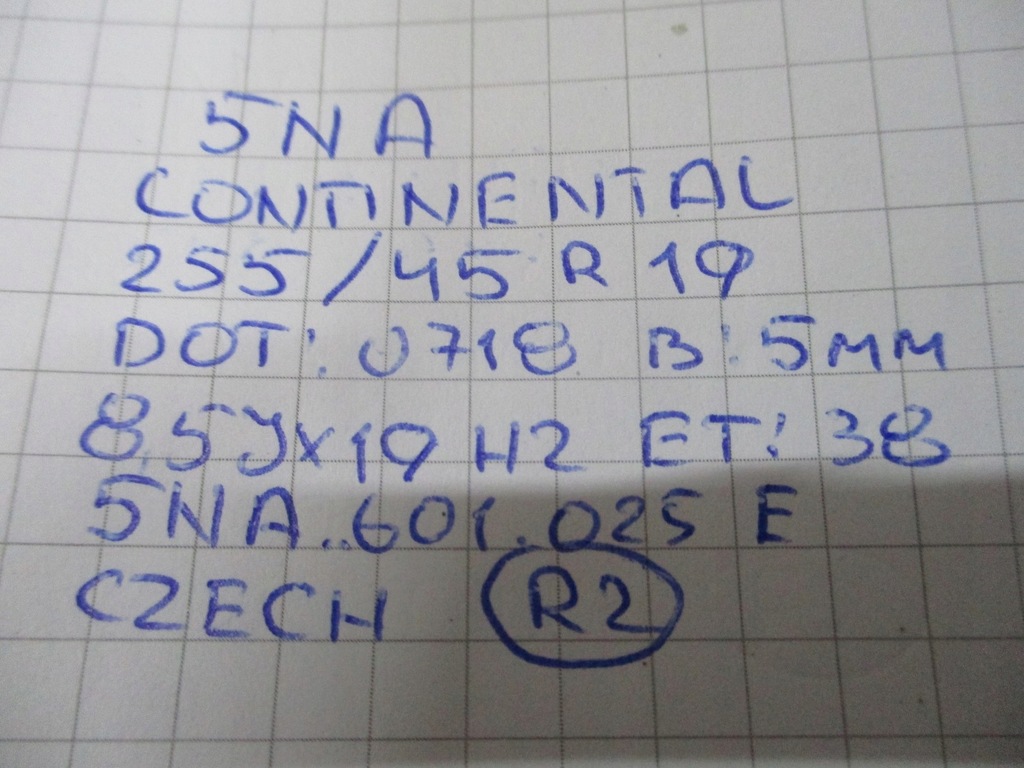 5NA
CONTINENTAL
255/45 R 19
DOT: 0718 B: 5MM
8,5Jx19 H2 ET: 38
5NA..601.025 E
CZECH R2